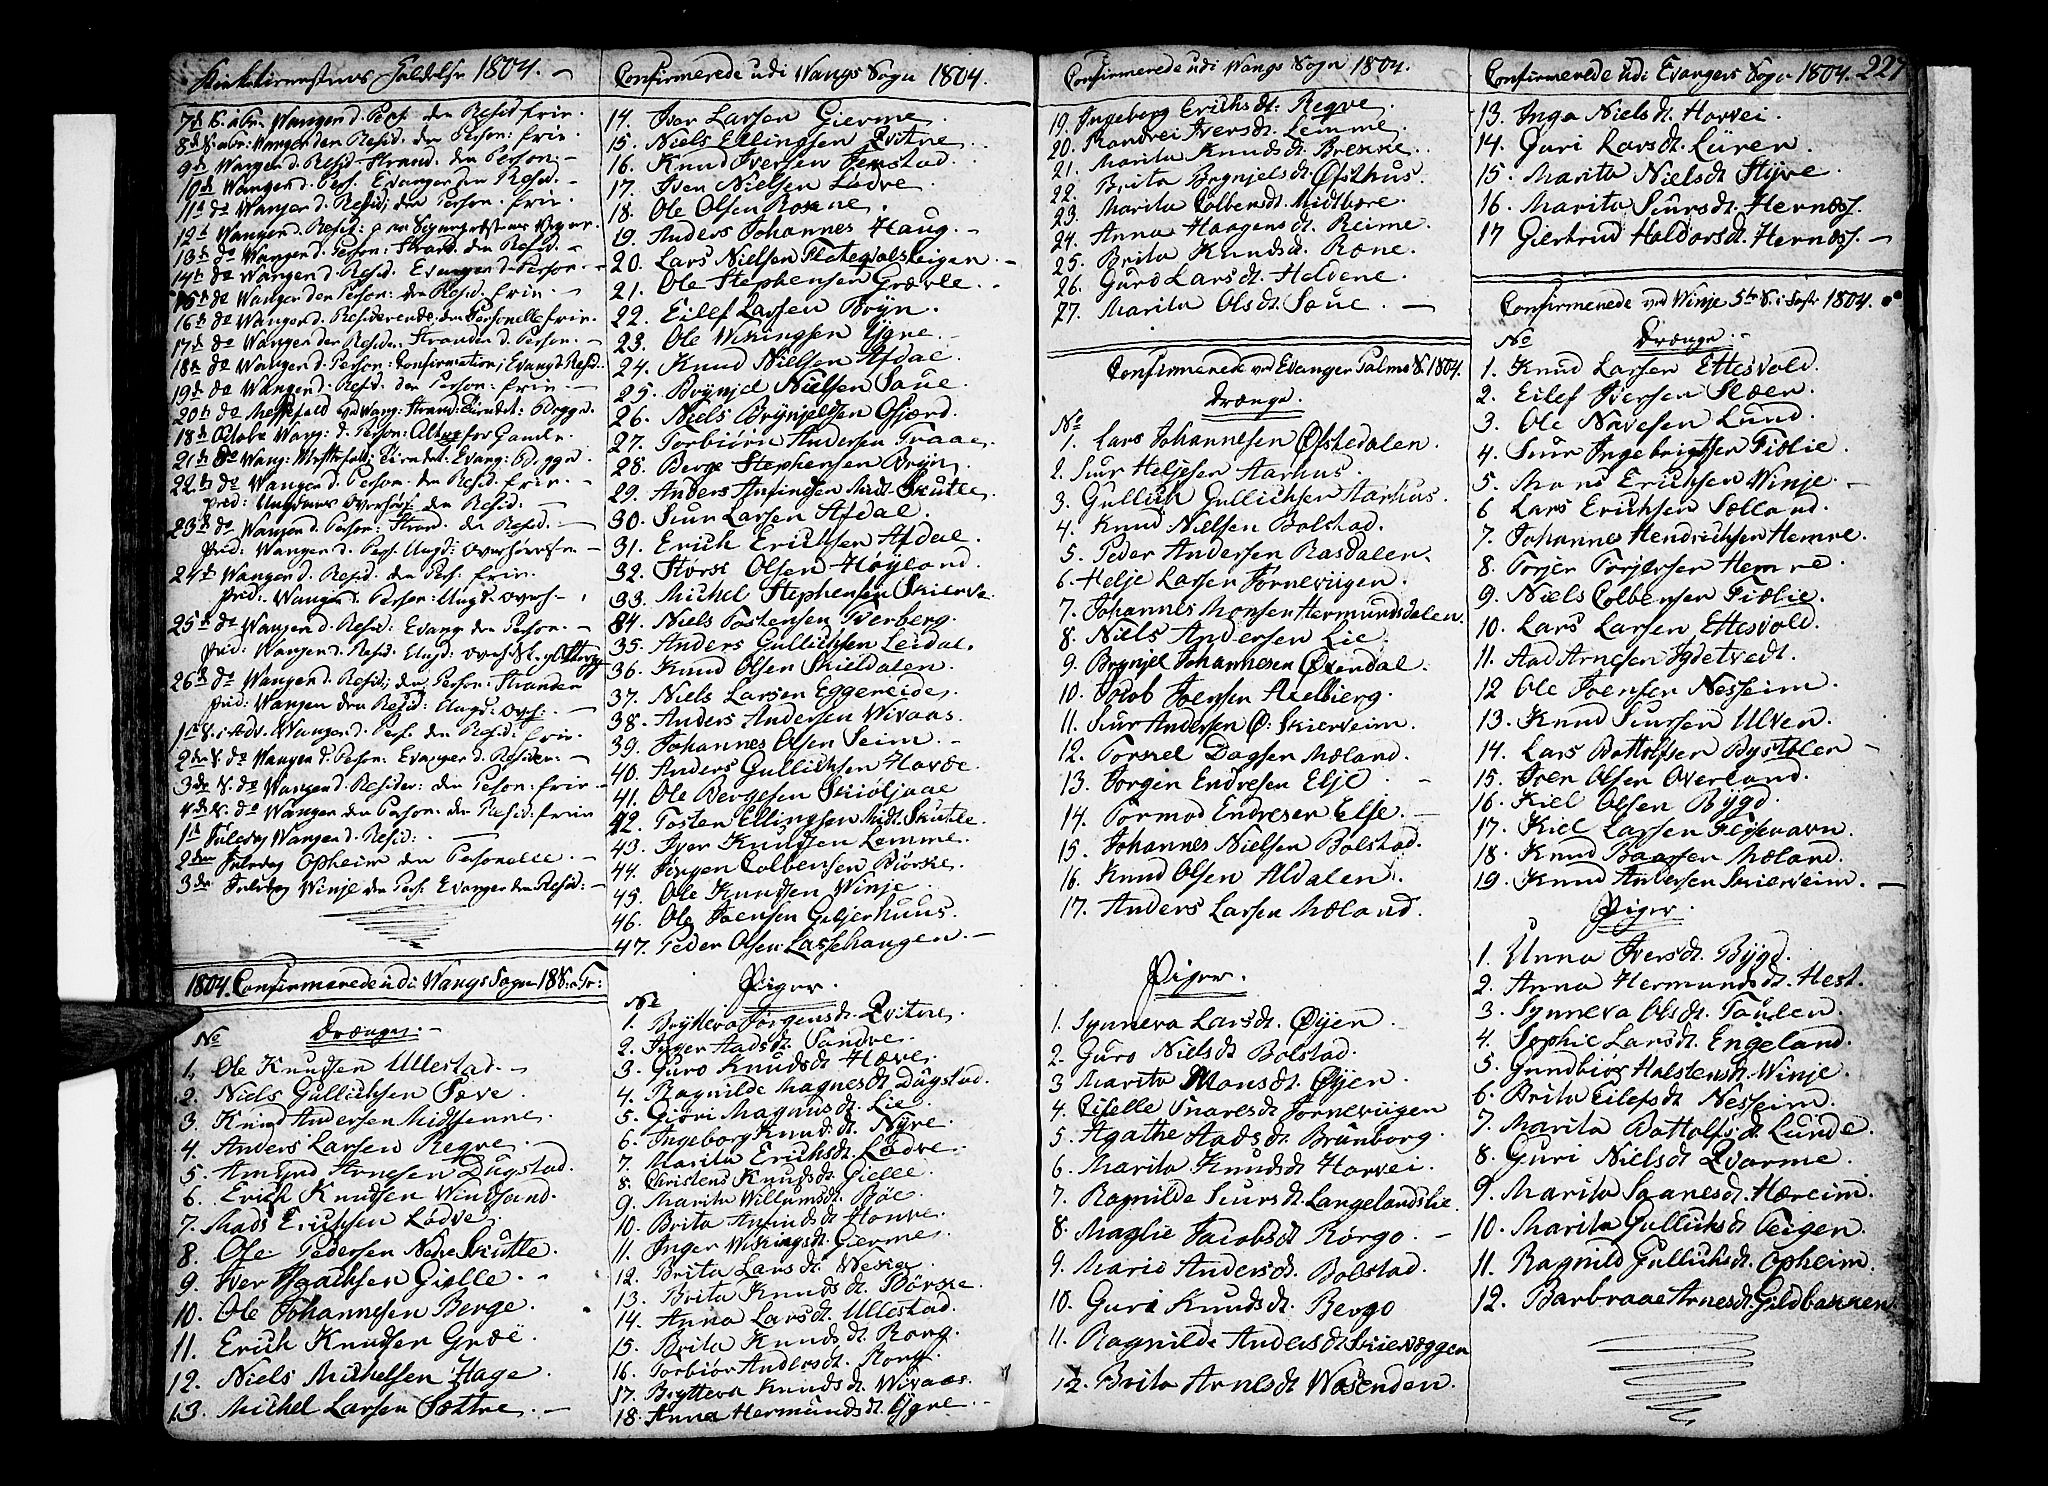 Kirketienestens Holdelse 1804. —
7d S. a Tr. Wangen d. Pers. den Resid. frie.
8d S. a Tr: Wangen den Resid. den Person: frie.
9d Wangen d. Resid. Strand. den Person: —
10d Wangen d. Pers. Evanger den Resid. —
11d do Wangen d. Resid; den Person. frie.
12d Wangen d. Resid:
13d do Wangen d. Person: Strand. den Resid. —
14d do Wangen d. Resid. Evanger d. Person. —
15d do Wangen den Person: den Resid. frie. —
16d do Wangen d. Residerende, den Personelle frie.
17d do Wangen den Resider: Stranden d. Person. —
18d do Wangen d. Person: Confirmation; Evang: d. Resid.
19d do Wangen d. Resid. den Person: frie. —
20d do Messefald
18d Octobr Wang: d. Person: Alterg. for Gamle.
21d do Wang: Messefald: Evang:
22d do Wangen d. Person. den Resid. frie. —
Præd: Ungdoms Overhør: den Resid: —
23d do Wangen d. Person: Strand. den Resid. —
Præd: Wangen d. Pers. Ungd: Overhørelse —
24d Wangen d. Resid. den Pers. frie.
Præd: Wangen d. Person: Ungd. Overh —
25d do Wangen d. Resid: Evang. den Person. —
Præd: Wangen d. Resid. Ungd.
26d do Wangen d. Resid; den Person: Stranden
Præd: Wangen den Resid: Ungd: Overh: —
1d S. i Adv. Wangen d. Pers. den Resid: frie.
2den S. do Wangen d. Person: Evanger d. Residen: —
3de S. do Wangen d. Resider: den Person. frie —
4de S. do Wangen den Person. den Resid: frie
1d Juledag Wangen d. Resid: —
2den Juledag Opheim den Personelle. —
3de Juledag Winje den Pers: Evanger den Resid: —
1804. Confirmerede udi Wangs Sogn 18 S. a Tr:
No Drænge: —
1. Ole Knudsen Ullestad. —
2. Niels Gullichsen Sæve.
3. Knud Andersen Midtenne.
4. Anders Larsen Regve. —
5. Amund Arnesen Dugstad.
6. Erich Knudsen Vindsand.
7. Mads Erichsen Lødve.
8. Ole Pedersen Nedre Skutle.
9. Iver Isachsen Gielle. —
10. Ole Johannesen Berge.
11. Erich Knudsen Græe.
12. Niels Michelsen Hage.
13. Michel Larsen Sættre. —
Confirmerede udi Wangs Sogn 1804.
14. Iver Larsen Gierme.
15. Niels Ellingsen Qvitne.
16. Knud Iversen Jemstad.
17. Iver Nielsen Lødve.
18. Ole Olsen Rokne.
19. Anders Johannes Haug. —
20. Lars Nielsen Flatequalsteigen. —
21. Ole Stephensen Græele.
22. Eilef Larsen Bryn.
23. Ole Wikingsen Ygre.
24. Knud Nielsen Afdal.
25. Brynjel Nielsen Saue.
26. Niels Brynjelsen Gjerd.
27. Torbiørn Andersen Traae.
28. Berge Stephensen Bryn.
29. Anders Anfindsen Midt Skutle.
30. Siur Larsen Afdal.
31. Erich Erichsen Afdal.
32. Storse Olsen Høyland.
33. Michel Stephensen Skierve
34. Niels Tostensen Tverberg.
35. Anders Gullichsen Leidal.
36. Knud Olsen Skieldalen.
37. Niels Larsen Eggereide.
38. Anders Andersen Wivaas.
39. Johannes Olsen Seim. —
40. Anders Gullichsen Havre.
41. Ole Bergesen Skiøljaae
42. Tosten Ellingsen Midt Skutle.
43. Iver Knudsen Lemme.
44. Jørgen Colbensen Børske.
45. Ole Knudsen Winje.
46. Ole Joensen Geljerhuus.
47. Peder Olsen Lassehaugen. —
No Piger.
1. Bryttera Jørgensdt. Qvitne.
2. Inger Aadsdt. Sandve.
3. Guro Knudsdt. Hæve.
4. Ragnilde Magnesdt. Dugstad.
5. Giøri Magnusdt. Lie.
6. Ingeborg Knud: dt. Nyre.
7. Marita Erichsdt. Lødve.
8. Christens Knudsdt. Gielle.
9. Marita Willumsdt. Bøe.
10. Brita Anfindsdt. Honve.
11. Inger Wikingsdt. Gierme.
12. Brita Larsdt. Weka.
13. Brita Knudsdt. Børske.
14. Anna Larsdt. Ullestad.
15. Brita Knudsdt. Rong.
16. Torbiør Andersdt. Rong.
17. Bryttera Knudsdt. Wivaas.
18. Anna Hermundsdt. Ygre. —
Confirmerede udi Wangs Sogn 1804.
19. Ingeborg Erichsdt: Regve.
20. Randvei Iversdt. Lemme.
21. Marita Knudsdt. Brekke.
22. Brita Brynjelsdt. Østhus.
23. Marita Colbensdt. Midtbøre.
24. Anna Haagensdt. Reime.
25. Brita Knudsdt. Rone.
26. Guro Larsdt. Heldene.
27. Marita Olsdt. Saue. —
Confirmerede ved Evanger Palme S. 1804.
Drænge.
No
1. Lars Johannesen Øfstedalen.
2. Siur Heljesen Aarhus.
3. Gullich Gullichsen Aarhus.
4. Knud Nielsen Bolstad.
5. Peder Andersen Rasdalen.
6. Helje Larsen Jorneviigen.
7. Johannes Monsen Hermundsdalen.
8. Niels Andersen Lie.
9. Brynjel Johannesen Øxendal.
10. Jacob Joensen Axelbierg.
11. Siur Andersen Ø: Skierveim.
12. Torkel Dagsen Mæland.
13. Jørgen Endresen Elje. —
14. Tormod Endresen Elje. —
15. Johannes Nielsen Bolstad.
16. Knud Olsen Aldalen.
17. Anders Larsen Mæland.
Piger.
1. Synneva Larsdt. Øyen.
2. Guro Nielsdt Bolstad.
3. Marita Monsdt. Øyen.
4. Cicelle Snaresdt Jorneviigen
5. Agathe Aadsdt Brunborg.
6. Marita Knudsdt Horvei.
7. Ragnilde Siursdt. Langelandslie.
8. Maglie Jacobsdt Rørgo. —
9. Mari Andersdt. Bolstad.
10. Guri Knudsdt. Bergo
11. Ragnilde Andersdt Skierveggen
12. Brita Arnesdt Wasenden.
Confirmerede udi Evangers Sogn 1804. 227
13. Inga Nielsdt. Horvei.
14. Guri Larsdt. Luren.
15. Marita Nielsdt Styve.
16. Marita Siursdt. Hernæss.
17 Giertrud Haldorsdt. Hernæss. —
Confirmerede ved Winje 5te S. i Faste 1804.
No Drænge. —
1. Knud Larsen Ettesvold.
2. Eilef Iversen Slæen.
3. Ole Navesen Lund.
4. Siur Ingebrigtsen Fiølie.
5. Mons Erichsen Winje. —
6 Lars Erichsen Sælland.
7. Johannes Hendrichsen Hemre.
8. Torjer Torjersen Hemre.
9. Niels Colbensen Fiølie.
10. Lars Larsen Ettesvold.
11. Aad Arnesen Igdetvedt.
12 Ole Joensen Nesheim.
13. Knud Siursen Ulven.
14. Lars Bottolfsen Bystølen —
15. Iver Olsen Overland.
16. Kiel Olsen Bygd.
17. Kiel Larsen Flisevavn.
18. Knud Baarsen Mæland.
19. Knud Andersen Skierveim. —
Piger.
1. Unna Iversdt. Bygd.
2. Anna Hermundsdt. Hest.
3. Synneva Olsdt. Taulen.
4. Sophie Larsdt. Engeland.
5. Gundbiør Halstensdt. Winje.
6. Brita Eilefsdt Nesheim.
7. Marita Bottolfsdt. Lunde.
8. Guri Nielsdt Qvarme.
9. Marita Saavesdt. Hæreim.
10. Marita Gullichsdt. Teigen.
11. Ragnild Gullichsdt. Opheim.
12. Barbraae Arnesdt. Gildbakken.